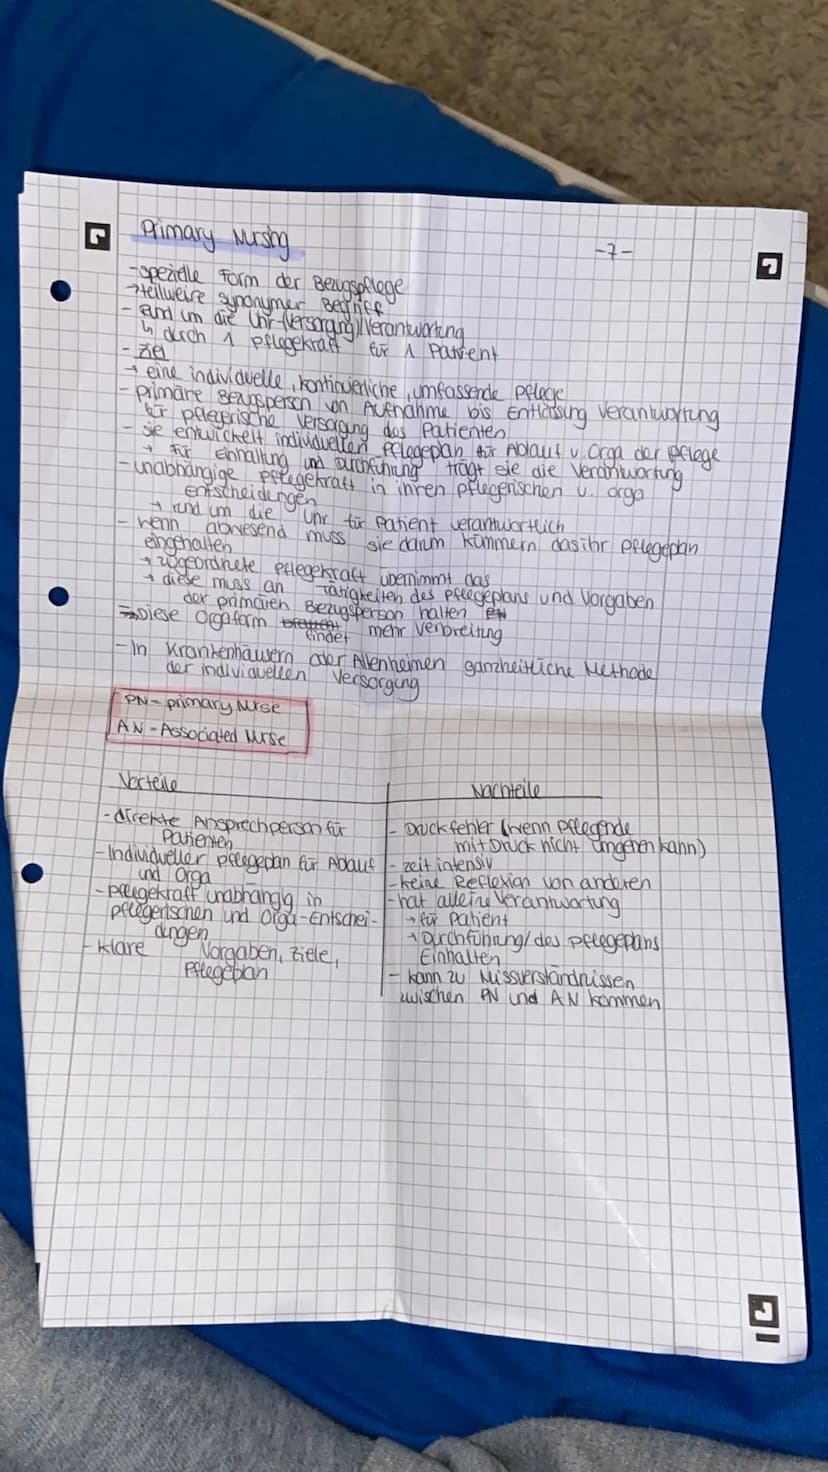 Primary Nursing
-7-
-spezielle Form der Bezugspflege
→teilweise synonymer Begriff
- Rund um die Uhr-(Versorgung)/Verantwortung
↳ durch 1 Pflegekraft für 1 Patient
- Ziel
→ eine individuelle, kontinuierliche, umfassende Pflege
- primäre Bezugsperson von Aufnahme bis Entlassung Verantwortung
für pflegerische Versorgung des Patienten
- sie entwickelt individuellen Pflegeplan für Ablauf u. Orga der Pflege
→ für Einhaltung und Durchführung trägt sie die Verantwortung
- unabhängige Pflegekraft in ihren pflegerischen u. orga
entscheidungen
→ rund um die Uhr für Patient verantwortlich
- wenn abwesend muss sie darum kümmern das ihr Pflegeplan
eingehalten
→ zugeordnete Pflegekraft übernimmt das
→ diese muss an Tätigkeiten des Pflegeplans und Vorgaben
der primären Bezugsperson halten
⇒ Diese Orgaform findet mehr Verbreitung
- In Krankenhäusern oder Altenheimen ganzheitliche Methode
der individuellen Versorgung
PN- primary Nurse
AN - Associated Nurse
Vorteile
- direkte Ansprechperson für
Patienten
- Individueller Pflegeplan für Ablauf
und Orga
- Pflegekraft unabhängig in
pflegerischen und Orga-Entschei-
dungen
- klare Vorgaben, Ziele,
Pflegeplan
Nachteile
- Druckfehler (wenn Pflegende
mit Druck nicht umgehen kann)
- zeit intensiv
- keine Reflexion von anderen
- hat alleine Verantwortung
→ für Patient
→ Durchführung/des Pflegeplans
Einhalten
- kann zu Missverständnissen
zwischen PN und AN kommen